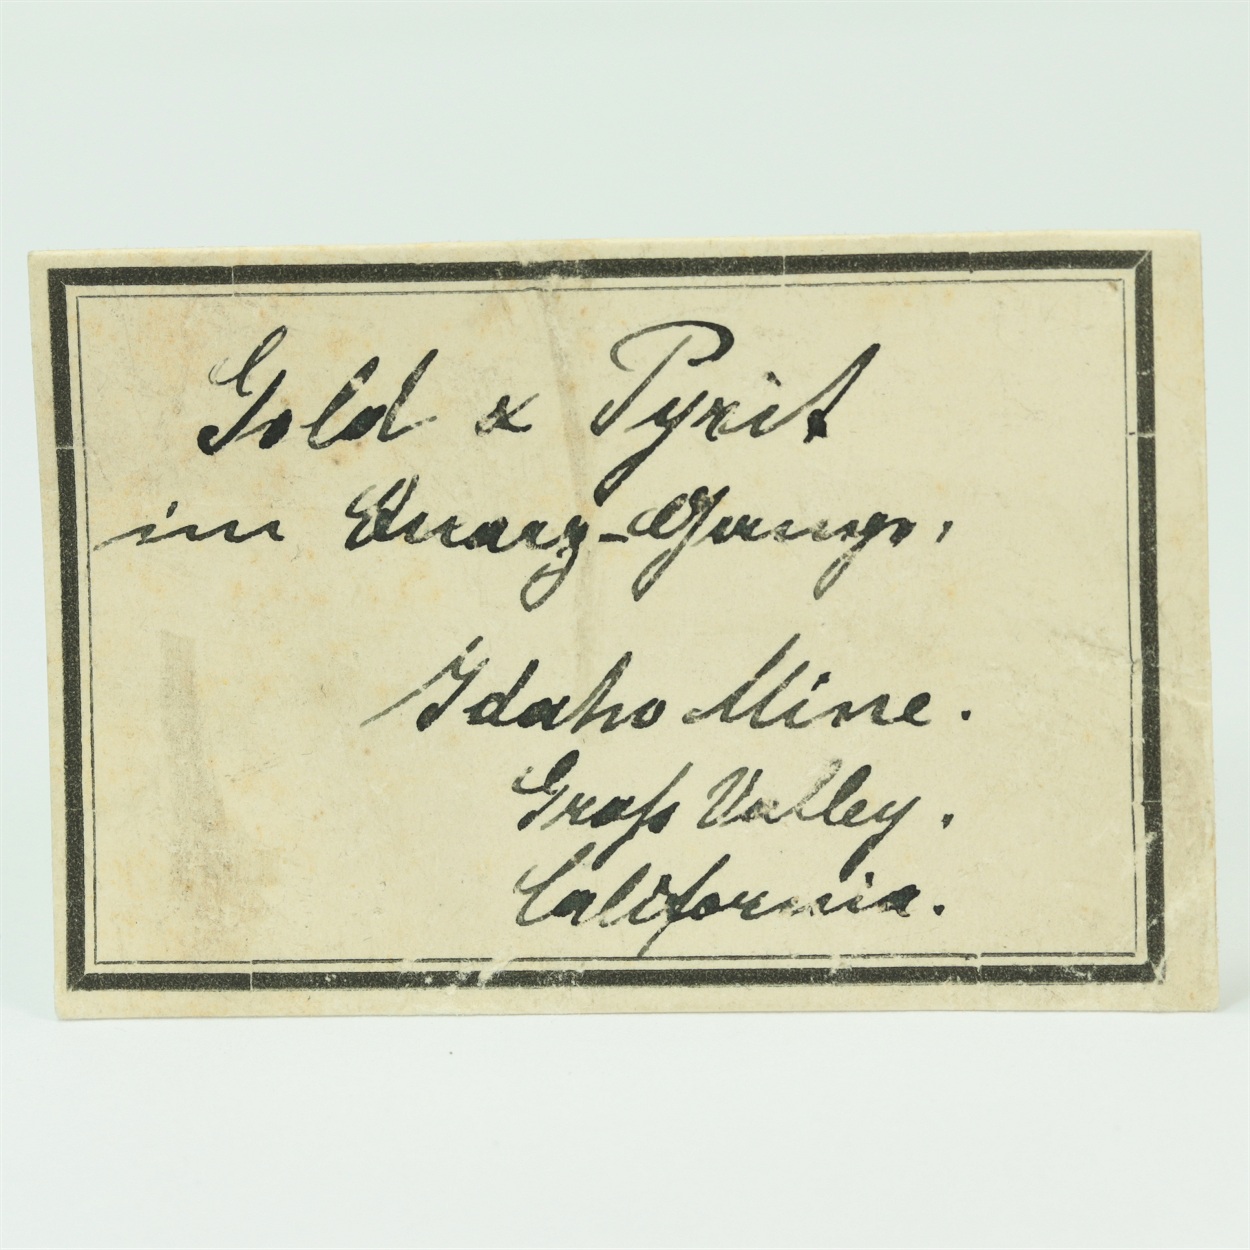 Gold & Pyrit
im Quarz-Gange,
Idaho Mine.
Graß Valley.
California.